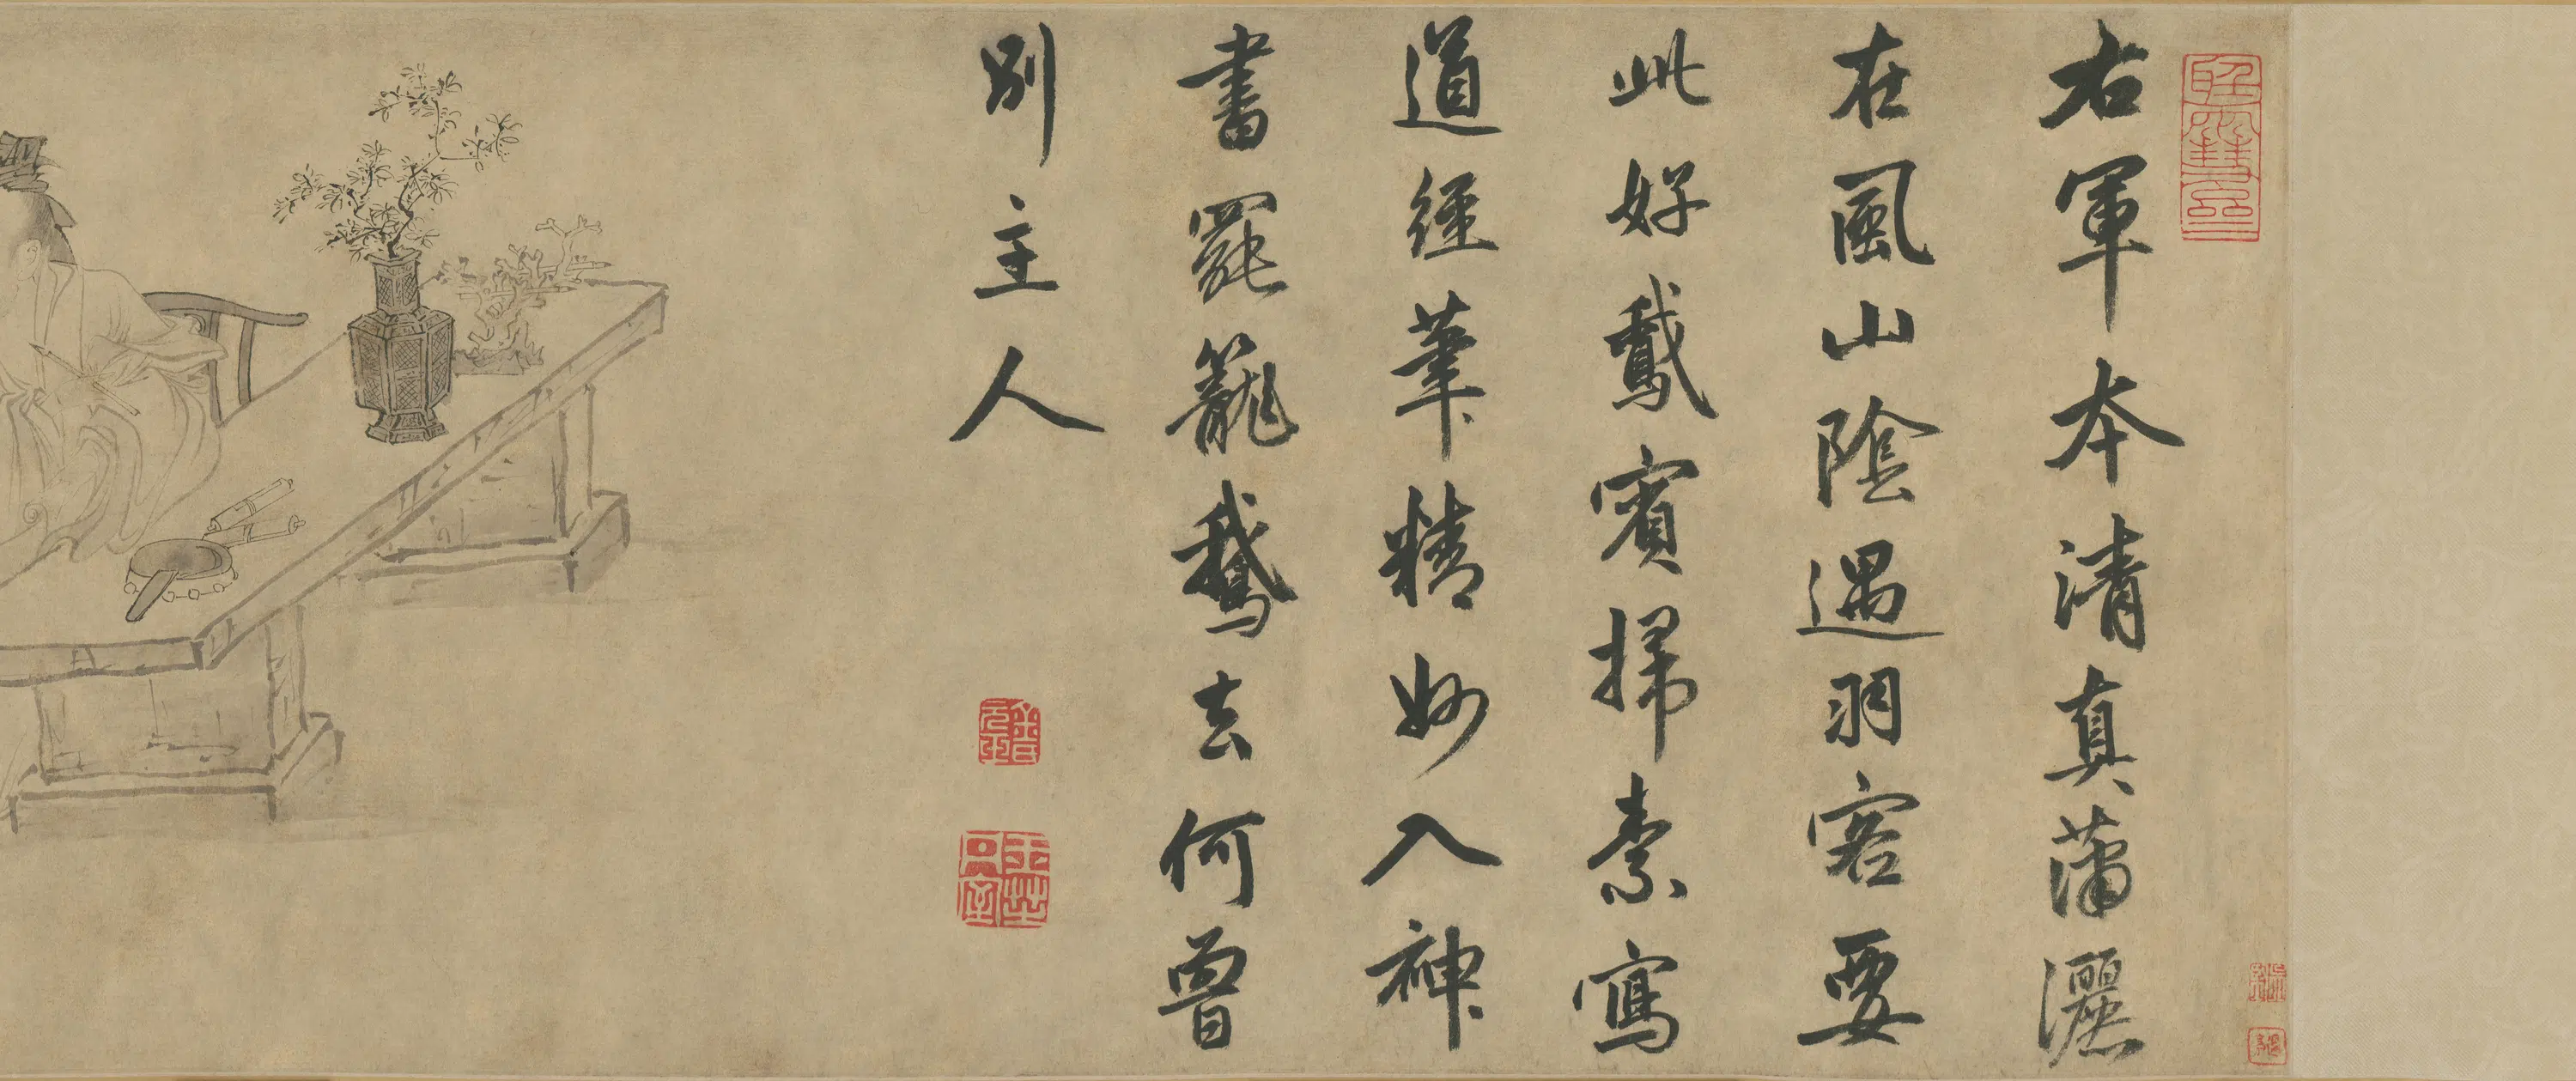 右軍本清真蒲灑
在風山陰遇羽客要
此好鵞賓掃素寫
道經筆精妙入神
書罷籠鵞去何曾
別主人